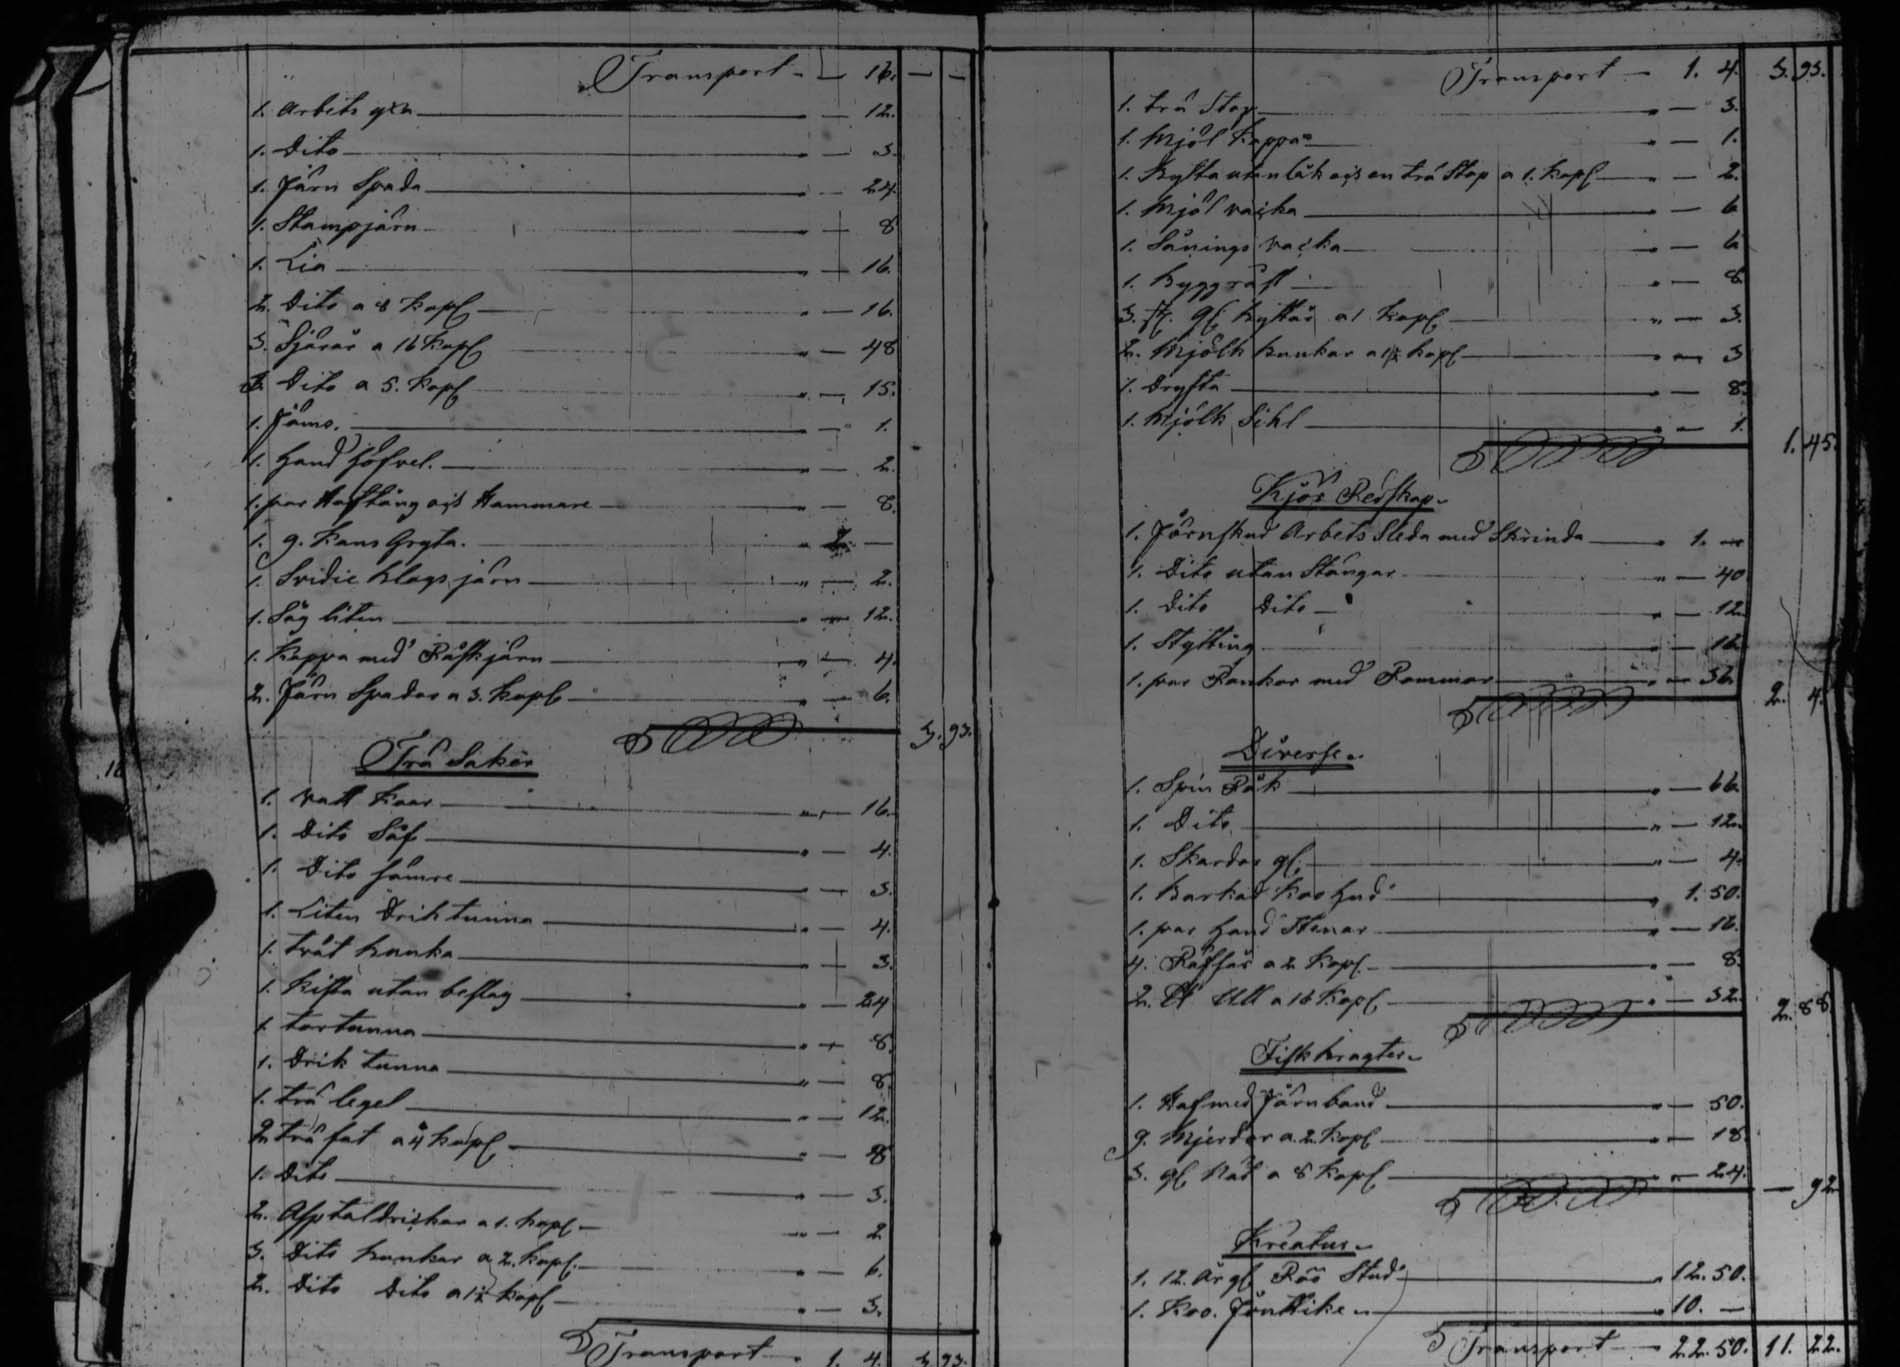 Transport — " — 16. — —
1. Arbets yxa — " — 12.
1. Dito — " — 3.
1. Järn Spada — " — 24.
1. Stampjärn — " — 8
1. Lia — " — 16.
2. Dito a 8 Kop — " — 16.
3. Skäror a 16 Kop — " — 48
3. Dito a 5. Kop — " — 15.
1. — " — 1.
1. Hand Höfvel. — " — 2.
1. par Hoftång och Hammare — " — 8.
1. 9. Kans Gryta. — " 2 —
1. — järn — " — 2.
1. Såg liten — " — 12.
1. Käppa med järn — " — 4.
2. Järn Spadar a 3. Kop — " — 6.
3. 93.
Trä Saker
1. Vatt Kaar — " — 16.
1. Dito Så — " — 4.
1. Dito sämre — " — 3.
1. Liten Drik tunna — " — 4.
1. tvät bunka — " — 3.
1. Kista utan beslag — " — 24
1. tortunna — " — 8.
1. Drik tunna — " — 8.
1. trä legel — " — 12.
2. trä fat a 4 Kop — " — 8
1. Dito — " — 3.
2. a 1. Kop — " — 2
3. Dito bunkar a 2. Kop — " — 6.
2. Dito Dito a 1½ Kop — " — 3.
Transport — " 1. 4. 3. 93.
Transport — 1. 4. 3. 93.
1. trä Stop — " — 3.
1. Mjöl Kappa — " — 1.
1. Bytta utan låk och en trä Stop a 1. Kop — " — 2.
1. Mjöl vacka — " — 6
1. Sånings vacka — " — 6
1. — " — 8.
3. st. gl. byttor a 1 Kop — " — 3.
2. Mjölk bunkar a 1½ Kop — " — 3
1. Dryfta — " — 8.
1. Mjölk Sihl — " — 1.
1. 45.
Kjör Redskap
1. Järnskod Arbets Släda med Skrinda — " 1. —
1. Dito utan Stångar — " — 40
1. Dito Dito — " — 12
1. Stytting — " — 16.
1. par Rankor med Rammar — " — 36.
2. 4.
Diverse
1. Spin Råk — " — 66.
1. Dito — " — 12.
1. Skardor gl. — " — 4.
1. Barkad Koohud — " 1. 50.
1. par Hand Stenar — " — 16.
4. a 2 Kop. — " — 8.
2. Ull a 16 Kop. — " — 32.
2. 88.
Fiskbragter
1. Haf med Järnband — " — 50.
9. Mjerdor a 2. Kop — " — 18.
3. gl. Nät a 8 Kop — " — 24.
— 92
Kreatur
1. 12. År gl. Röö Stud — " 12. 50.
1. Koo. — " 10. —
Transport — 22. 50. 11. 22.